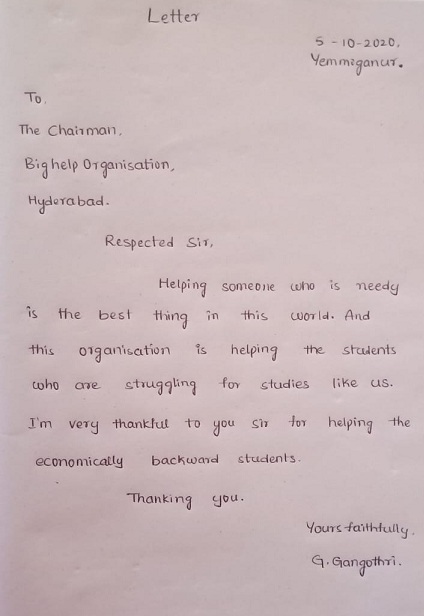 Letter
5-10-2020.
Yemmiganur.
To,
The Chairman,
Big help Organisation,
Hyderabad.
Respected Sir,
Helping someone who is needy
is the best thing in this world. And
this organisation is helping the students
who are struggling for studies like us.
I'm very thankful to you sir for helping the
economically backward students.
Thanking you.
Yours faithfully,
G. Gangothri.